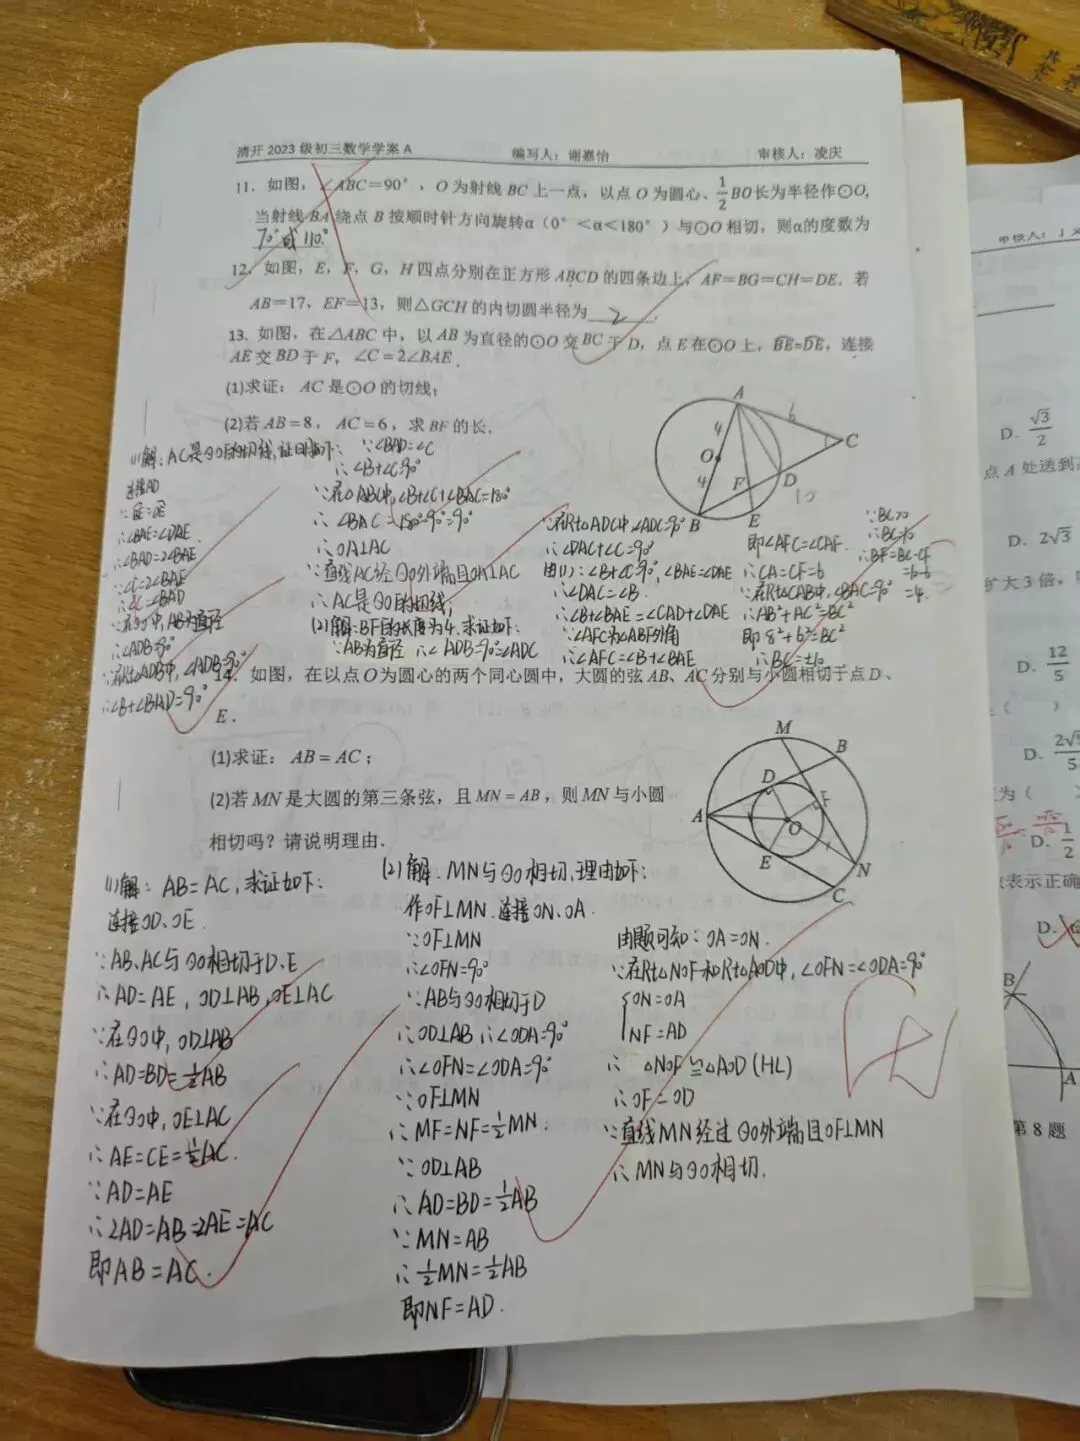 清开2023级初三数学学案A 编写人：谢嘉怡 审核人：凌庆
11. 如图，∠ABC=90°，O为射线BC上一点，以点O为圆心、1/2BO长为半径作⊙O，
当射线BA绕点B按顺时针方向旋转α（0°<α<180°）与⊙O相切，则α的度数为
70°或110°
12. 如图，E，F，G，H四点分别在正方形ABCD的四条边上，AF=BG=CH=DE．若
AB=17，EF=13，则△GCH的内切圆半径为 2 ．
13. 如图，在△ABC中，以AB为直径的⊙O交BC于D，点E在⊙O上，BE=DE，连接
AE交BD于F，∠C=2∠BAE．
(1)求证：AC是⊙O的切线；
(2)若AB=8，AC=6，求BF的长．
A
6
4
O
C
4
F
D
10
B
E
(1)解：AC是⊙O的切线,证明如下：
连接AD
∵BE=DE
∴∠BAE=∠DAE
∴∠BAD=2∠BAE
∵∠C=2∠BAE
∴∠C=∠BAD
∵在⊙O中,AB为直径
∴∠ADB=90°
∴在Rt△ADB中,∠ADB=90°
∴∠B+∠BAD=90°
∵∠BAD=∠C
∴∠B+∠C=90°
∵在△ABC中,∠B+∠C+∠BAC=180°
∴∠BAC=180°-90°=90°
∴OA⊥AC
∵直线AC经⊙O外端且OA⊥AC
∴AC是⊙O的切线;
(2)解:BF的长度为4.求证如下:
∵AB为直径 ∴∠ADB=90°=∠ADC
∵在Rt△ADC中,∠ADC=90°
∴∠DAC+∠C=90°
由(1):∠B+∠C=90°,∠BAE=∠DAE
∴∠DAC=∠B.
∴∠B+∠BAE=∠CAD+∠DAE
∵∠AFC为△ABF外角
∴∠AFC=∠B+∠BAE
即∠AFC=∠CAF.
∴CA=CF=6
∵在Rt△CAB中,∠BAC=90°
∴AB²+AC²=BC²
即8²+6²=BC²
∴BC=±10
∵BC>0
∴BC=10
∴BF=BC-CF
=10-6
=4.
14. 如图，在以点O为圆心的两个同心圆中，大圆的弦AB、AC分别与小圆相切于点D、
E．
(1)求证：AB=AC；
(2)若MN是大圆的第三条弦，且MN=AB，则MN与小圆
相切吗？请说明理由．
M
B
D
F
A
O
E
N
C
(1)解：AB=AC,求证如下：
连接OD、OE.
∵AB、AC与⊙O相切于D、E
∴AD=AE，OD⊥AB,OE⊥AC
∵在⊙O中,OD⊥AB
∴AD=BD=1/2AB
∵在⊙O中,OE⊥AC
∴AE=CE=1/2AC.
∵AD=AE
∴2AD=AB=2AE=AC
即AB=AC.
(2)解：MN与⊙O相切,理由如下：
作OF⊥MN.连接ON、OA.
∵OF⊥MN
∴∠OFN=90°
∵AB与⊙O相切于D
∴OD⊥AB ∴∠ODA=90°
∴∠OFN=∠ODA=90°
∵OF⊥MN
∴MF=NF=1/2MN.
∵OD⊥AB
∴AD=BD=1/2AB
∵MN=AB
∴1/2MN=1/2AB
即NF=AD.
由题可知：OA=ON.
∵在Rt△NOF和Rt△AOD中,∠OFN=∠ODA=90°
{ON=OA
NF=AD
∴△NOF≌△AOD(HL)
∴OF=OD
∵直线MN经过⊙O外端且OF⊥MN
∴MN与⊙O相切.
审核人：
D. √3/2
点A处送到
D. 2√3
扩大3倍，
D. 12/5
D.
为（
D. 1/2
表示正确
D.
B
A
第8题